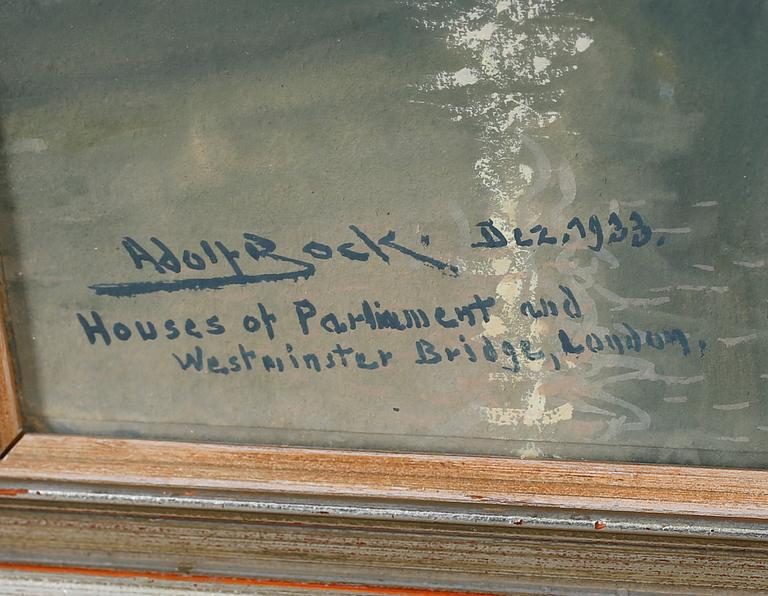 Adolf Bock. Dez. 1933.
Houses of Parliament and
Westminster Bridge, London.